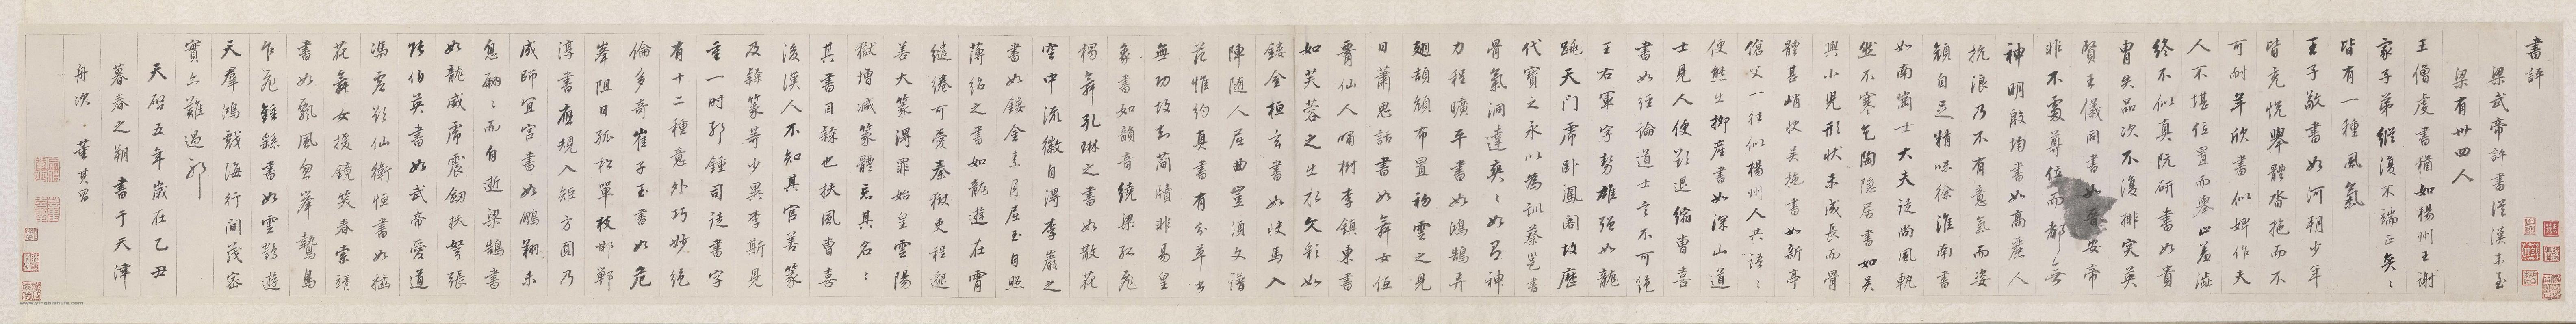 書評
梁武帝評書從漢末至
梁有卅四人
王僧虔書猶如楊州王謝
家子弟縱復不端正奕々
皆有一種風氣
王子敬書如河朔少年
皆充悅舉體沓拖而不
可耐羊欣書似婢作夫
人不堪位置而舉止羞澀
終不似真阮研書如貴
胄失品次不復排突英
賢王儀同書如晉安帝
非不處尊位而都無
神明殷均書如高麗人
抗浪乃不有意氣而姿
顏自足精味徐淮南書
如南崗士大夫徒尚風軌
然不寒乞陶隱居書如吳
興小兒形狀未成長而骨
體甚峭快吳施書如新亭
傖父一往似楊州人共語々
便態出柳產書如深山道
士見人便欲退縮曹喜
書如經論道士言不可絕
王右軍字勢雄強如龍
跳天門虎卧鳳閣故歷
代寶之永以為訓蔡邕書
骨氣洞達爽々如有神
力程曠平書如鴻鵠弄
翅頡頏布置初雲之見
日蕭思話書如舞女低
腰仙人嘯樹李鎮東書
如芙蓉之出水文彩如
鏤金桓玄書如快馬入
陣隨人屈曲豈須文譜
范惟約真書有分草書
無功故知簡牘非易皇
象書如韻音繞梁孤飛
獨舞孔琳之書如散花
空中流徽自得李巖之
書如鏤金素月屈玉自照
薄紹之書如龍遊在霄
繾綣可愛秦獄吏程邈
善大篆得罪始皇雲陽
獄增減篆體去其名々
其書曰隸也扶風曹喜
後漢人不知其官善篆
及隸篆等少異李斯見
重一時耶鍾司徒書字
有十二種意外巧妙絕
倫多奇崔子玉書如危
峯阻日孤松單枝邯鄲
淳書應規入矩方圓乃
成師宜官書如鵬翔未
息翩々而自逝梁鵠書
如龍威虎震劒拔弩張
張伯英書如武帝愛道
憑虛欲仙衛恒書如插
花舞女援鏡笑春索靖
書如飄風忽舉鷙鳥
乍飛鍾繇書如雲鵠遊
天羣鴻戲海行間茂密
實亦難過耶
天啟五年歲在乙丑
暮春之朔書于天津
舟次董其昌